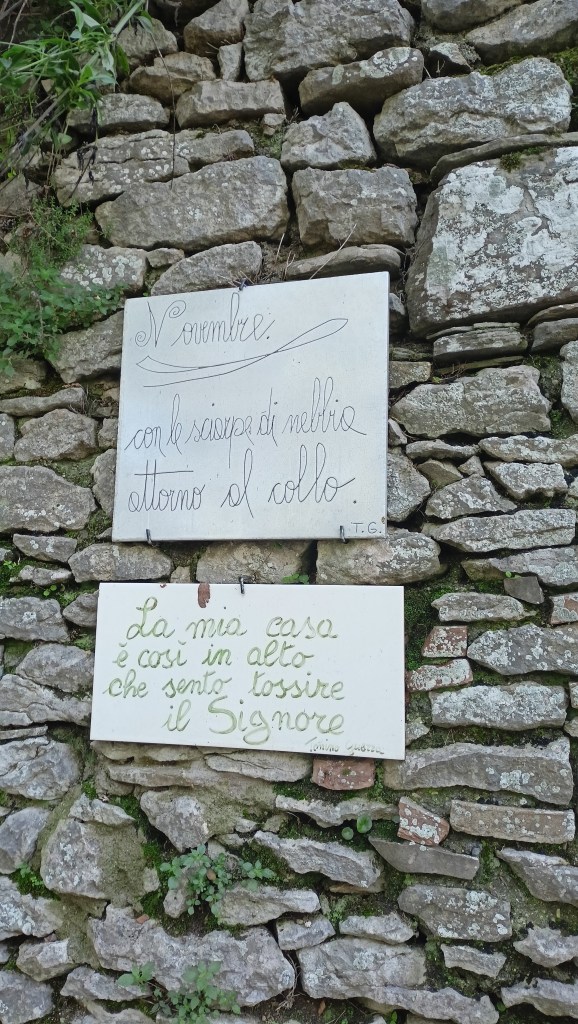 Novembre.
con le sciarpe di nebbia
attorno al collo.
T.G.
La mia casa
è così in alto
che sento tossire
il Signore
Tonino Guerra